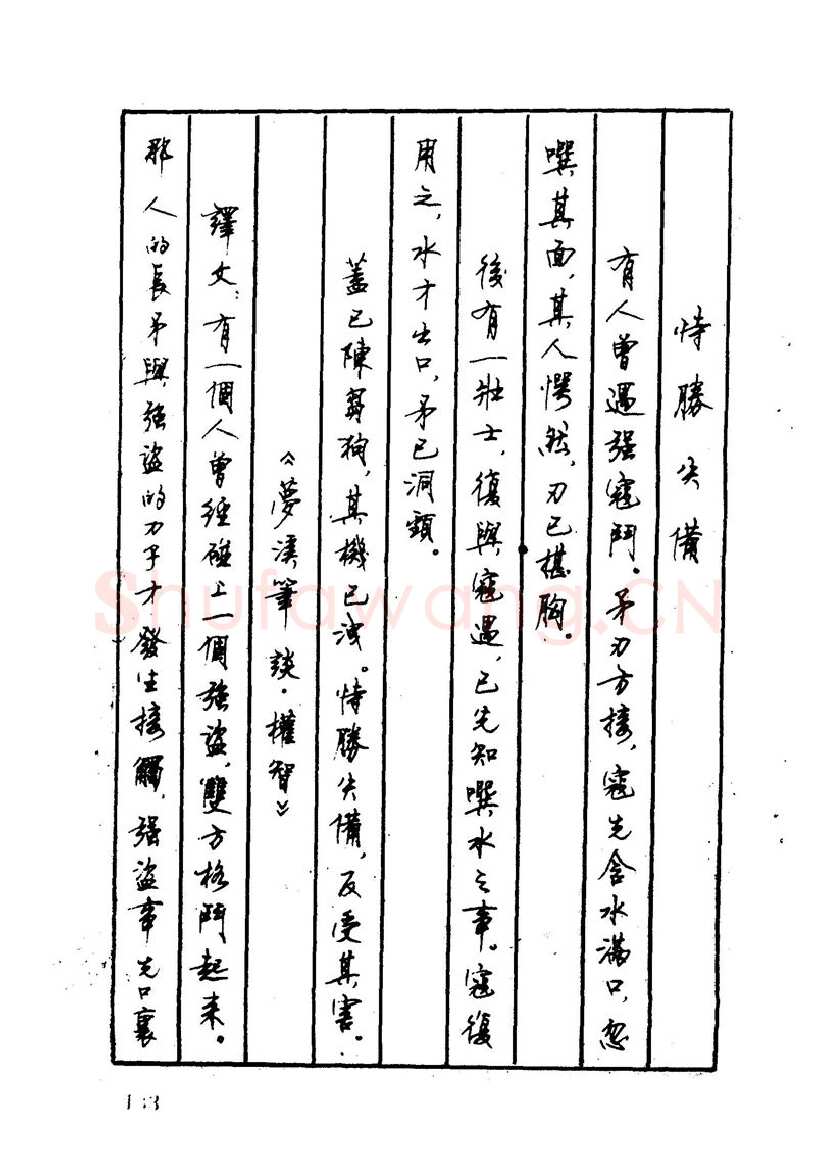 恃勝失備
有人曾遇强寇鬥。矛刃方接，寇先含水滿口，忽
噀其面，其人愕然，刃已椹胸。
後有一壯士，復與寇遇，已先知噀水之事。寇復
用之，水才出口，矛已洞頸。
蓋已陳芻狗，其機已洩。恃勝失備，反受其害。
《夢溪筆談·權智》
譯文：有一個人曾經碰上一個强盜，雙方格鬥起来。
那人的長矛與强盜的刀子才發生接觸，强盜事先口裏
Shufawang.CN